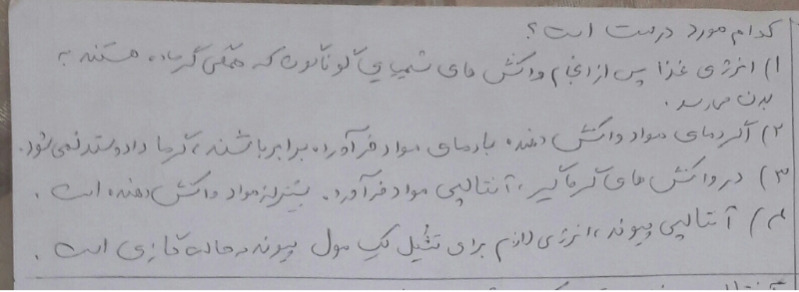 کدام مورد درست است؟
۱) انرژی غذا پس از انجام واکنش های شیمیایی گوناگون که همگی گرماده هستند به
بدن می رسد.
۲) اگر دمای مواد واکنش دهنده با دمای مواد فرآورده برابر باشند، گرما داد و ستد نمی شود.
۳) در واکنش های گرماگیر، آنتالپی مواد فرآورده بیشتر از مواد واکنش دهنده است.
۴) آنتالپی پیوند، انرژی لازم برای تشکیل یک مول پیوند در حالت گازی است.